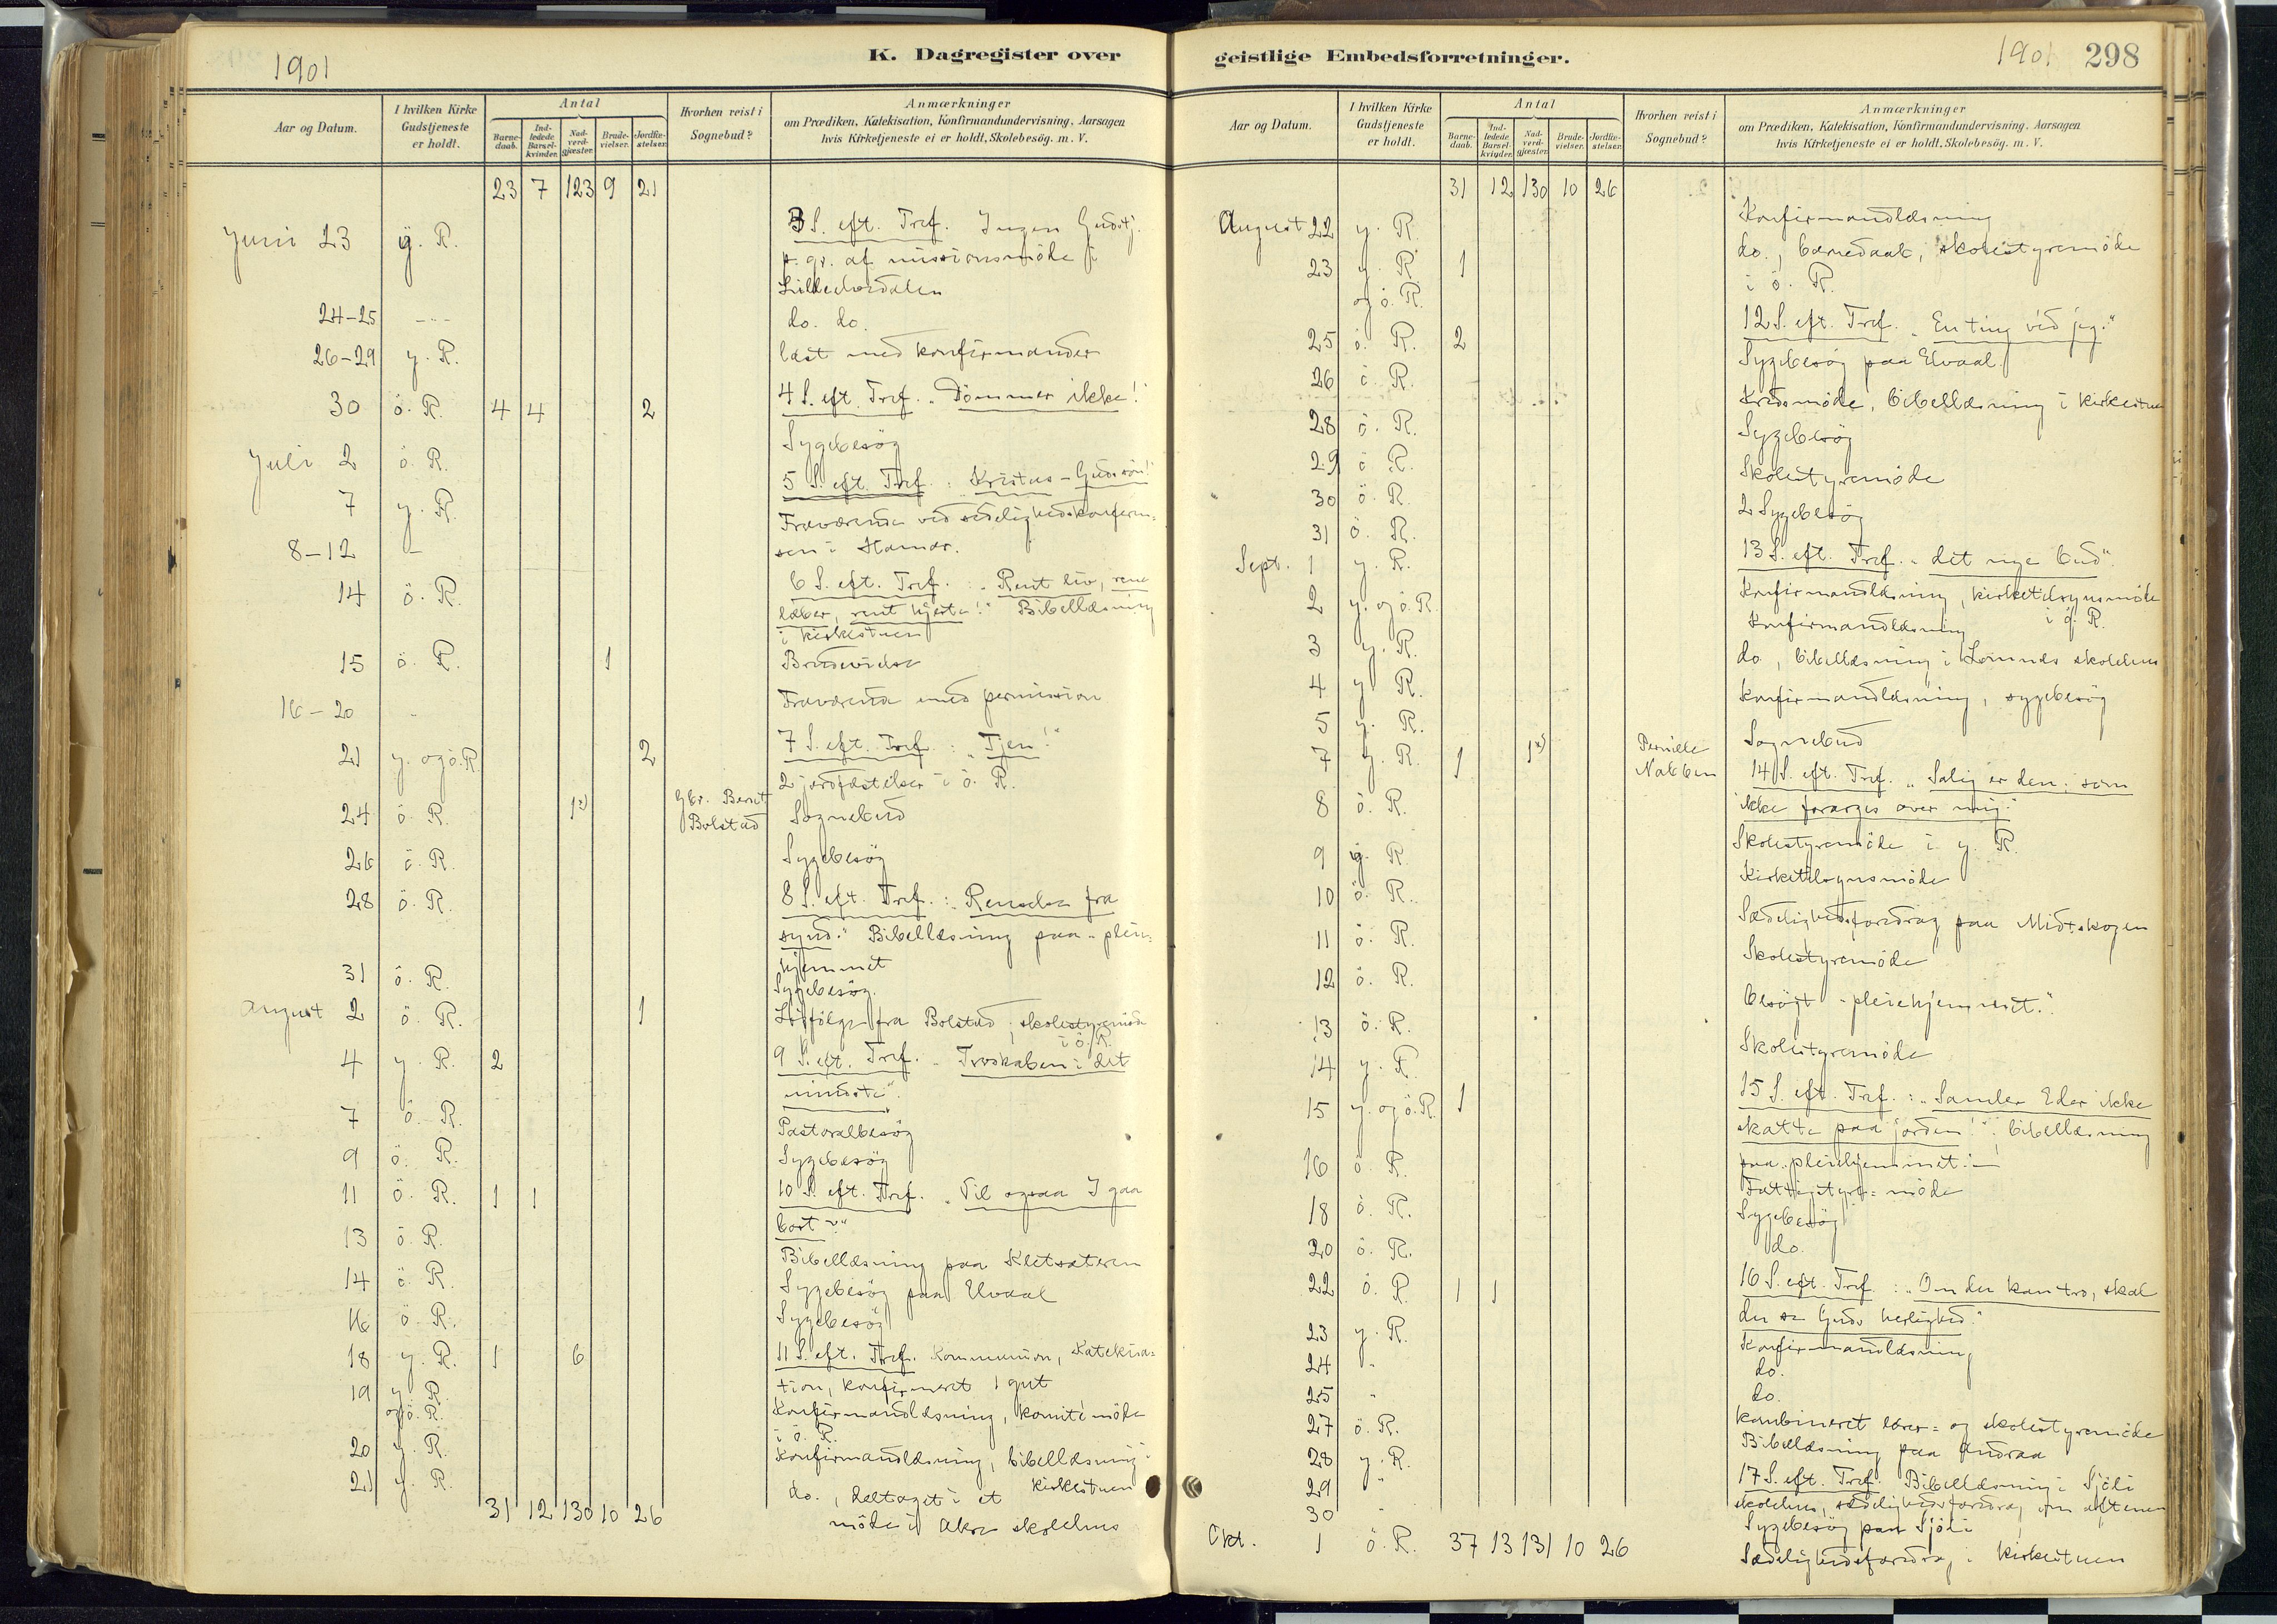 1901
K. Dagregister over
Aar og Datum.
I hvilken Kirke Gudstjeneste er holdt.
Antal
Barnedaab.
Indledede Barselkvinder.
Nadverdgjæster.
Brudevielser.
Jordfæstelser.
Hvorhen reist i Sognebud?
Anmærkninger
om Prædiken, Katekisation, Konfirmandundervisning, Aarsagen
hvis Kirketjeneste ei er holdt, Skolebesög. m. V.
23 7 123 9 21
Juni 23 y. R. 3 S. eft. Tref. Ingen Gudstj.
p. gr. af missionsmöde i
Lilleelvedalen
24-25 -"- do. do.
26-29 y. R. læst med konfirmander
30 ö. R. 4 4 2 4 S. eft. Tref. "Dömmer ikke!"
Juli 2 ö. R. Sygebesög
7 y. R. 5 S. eft. Tref.: "Kristus - Guds sön!"
8-12 - Fraværende ved sædelighedskonferen-
sen i Hamar.
14 ö. R. 6 S. eft. Tref.: "Rent liv, rene
læber, rent hjerte!" Bibellæsning
i kirkestuen
15 ö. R. 1 Brudevielse
16-20 - Fraværende med permission
21 y. og ö. R. 2 7 S. eft. Tref.: "Tjen!"
2 jordfæstelser i ö. R.
24 ö. R. 1x) Gbr. Bernt Bolstad Sognebud
26 ö. R. Sygebesög
28 ö. R. 8 S. eft. Tref.: "Renselse fra
synd." Bibellæsning paa "pleie-
hjemmet
31 ö. R. Sygebesög.
August 2 ö. R. 1 Ligfölge fra Bolstad, skolestyremöde
i ö. R.
4 y. R. 2 9 S. eft. Tref. "Troskaben i det
mindste".
7 ö. R. Pastoralbesög
9 ö. R. Sygebesög
11 ö. R. 1 1 10 S. eft. Tref. "Vil ogsaa I gaa
bort?"
13 ö. R. Bibellæsning paa Kletsæteren
14 ö. R. Sygebesög paa Elvaal
16 ö. R. Sygebesög
18 y. R. 1 6 11 S. eft. Tref. Kommunion, Katekisa-
tion, konfirmeret 1 gut
19 y. R. og ö. R. Konfirmandlæsning, komitémöde
i ö. R.
20 y. R. Konfirmandlæsning, bibellæsning i
kirkestuen
21 y. R. do., deltaget i et
möde i Akre skolehus
31 12 130 10 26
geistlige Embedsforretninger.
1901 298
Aar og Datum.
I hvilken Kirke Gudstjeneste er holdt.
Antal
Barnedaab.
Indledede Barselkvinder.
Nadverdgjæster.
Brudevielser.
Jordfæstelser.
Hvorhen reist i Sognebud?
Anmærkninger
om Prædiken, Katekisation, Konfirmandundervisning, Aarsagen
hvis Kirketjeneste ei er holdt, Skolebesög. m. V.
31 12 130 10 26
August 22 y. R. Konfirmandlæsning
23 y. R. og ö. R. 1 do., barnedaab, skolestyremöde
i ö. R.
25 ö. R. 2 12 S. eft. Tref. "En ting ved jeg."
26 ö. R. Sygebesög paa Elvaal
28 ö. R. Kredsmöde, bibellæsning i kirkestuen
29 ö. R. Sygebesög
" 30 ö. R. Skolestyremöde
31 ö. R. 2 Sygebesög
Sept. 1 y. R. 13 S. eft. Tref. "det nye bud".
2 y. og ö. R. Konfirmandlæsning, kirketilsynsmöde
i ö. R.
3 y. R. Konfirmandlæsning
4 y. R. do., bibellæsning i Lomnæs skolehus
5 y. R. Konfirmandlæsning, sygebesög
7 y. R. 1 1x) Pernille Nabben Sognebud
8 ö. R. 14 S. eft. Tref. "Salig er den, som
ikke forarges over mig."
9 y. R. Skolestyremöde i y. R.
10 ö. R. Kirketilsynsmöde
11 ö. R. Sædelighedsforedrag paa Midtskogen
12 ö. R. Skolestyremöde
13 ö. R. besögt "pleiehjemmet".
14 y. R. Skolestyremöde
15 y. og ö. R. 1 15 S. eft. Tref.: "Samler Eder ikke
skatte paa jorden!", bibellæsning
paa "pleiehjemmet".
16 ö. R. Fattigstyre-möde
18 ö. R. Sygebesög
20 ö. R. do.
22 ö. R. 1 1 16 S. eft. Tref.: "Om du kan tro, skal
du se Guds herlighed."
23 y. R. Konfirmandlæsning
24 " do.
25 " do.
27 ö. R. Kombineret lærer- og skolestyremöde
28 y. R. Bibellæsning paa Andraa
29 " 17 S. eft. Tref. Bibellæsning i Sjöli
skolehus, sædelighedsforedrag om aftenen
30 " Sygebesög paa Sjöli
Okt. 1 ö. R. Sædelighedsforedrag i kirkestuen
37 13 131 10 26